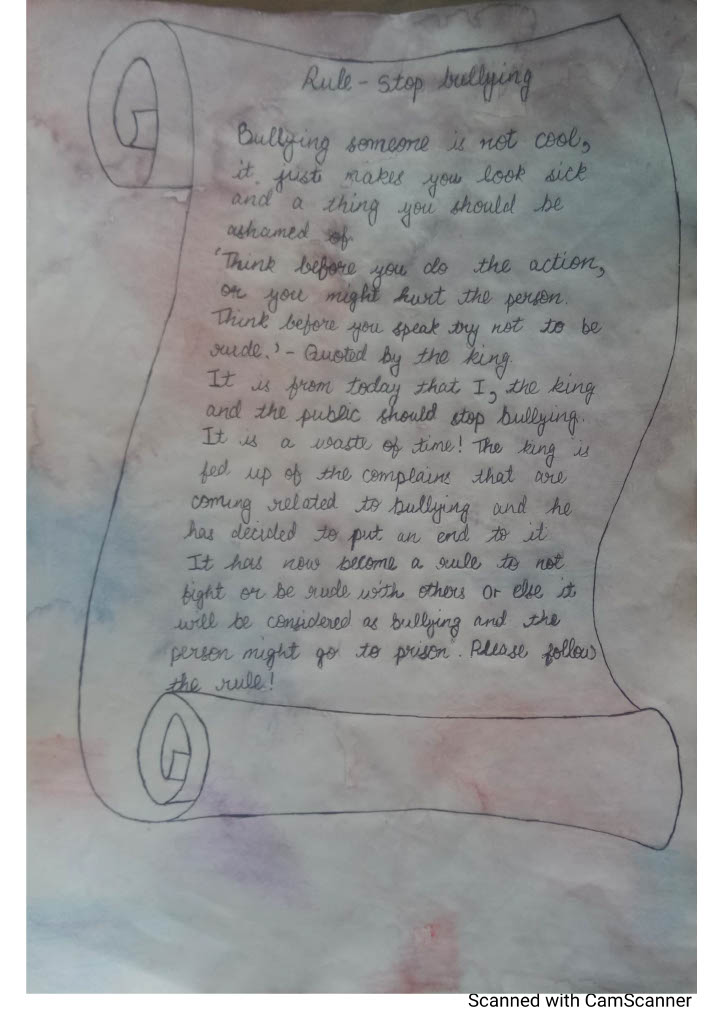 Rule - Stop bullying
Bullying someone is not cool,
it just makes you look sick
and a thing you should be
ashamed of
'Think before you do the action,
or you might hurt the person.
Think before you speak try not to be
rude.' - Quoted by the king.
It is from today that I, the king
and the public should stop bullying.
It is a waste of time! The king is
fed up of the complains that are
coming related to bullying and he
has decided to put an end to it
It has now become a rule to not
fight or be rude with others or else it
will be considered as bullying and the
person might go to prison. Please follow
the rule!
Scanned with CamScanner